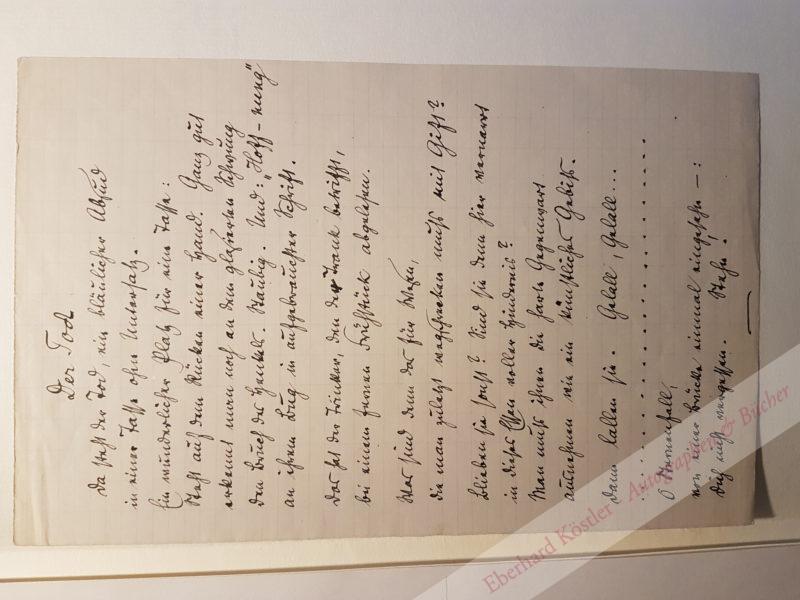 Der Tod
Da steht der Tod, ein bläulicher Absud
in einer Tasse ohne Untersatz.
Ein wunderlicher Platz für eine Tasse:
steht auf dem Rücken einer Hand. Ganz gut
erkennt man noch an dem glasierten Schwung
den Bruch des Henkels. Staubig. Und: „Hoff-nung"
an ihrem Bug in aufgebrauchter Schrift.
Das hat der Trinker, den der Trank betrifft,
bei einem fernen Frühstück abgelesen.
Was sind denn das für Wesen,
die man zuletzt wegschrecken muß mit Gift?
Blieben sie sonst? Sind sie denn hier vernarrt
in dieses Essen voller Hindernis?
Man muß ihnen die harte Gegenwart
ausnehmen wie ein künstliches Gebiß.
Dann lallen sie. Gelall, Gelall...
. . . . . . . . . . . . . . . . . . . . . . . .
O Sternenfall,
von einer Brücke einmal eingesehn —:
Dich nicht vergessen. Stehn!
Eberhard Köstler - Autographen & Bücher